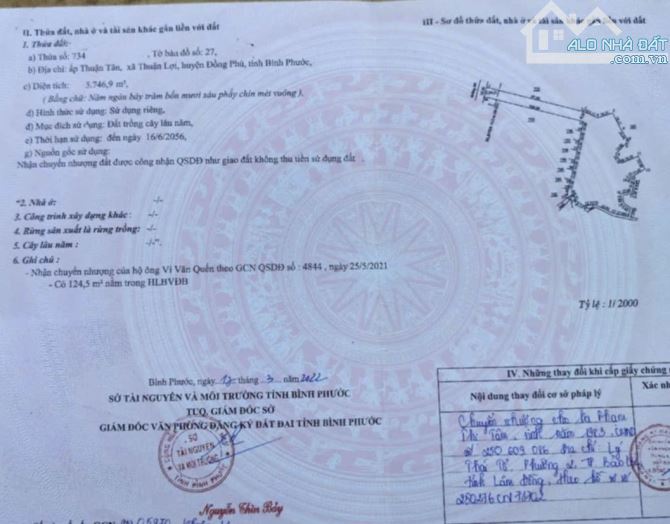 II. Thửa đất, nhà ở và tài sản khác gắn liền với đất
1. Thửa đất:
a) Thửa số: 734 , Tờ bản đồ số: 27,
b) Địa chỉ: ấp Thuận Tân, xã Thuận Lợi, huyện Đồng Phú, tỉnh Bình Phước,
c) Diện tích: 5.746,9 m²,
( Bằng chữ: Năm ngàn bảy trăm bốn mươi sáu phẩy chín mét vuông ),
d) Hình thức sử dụng: Sử dụng riêng,
đ) Mục đích sử dụng: Đất trồng cây lâu năm,
e) Thời hạn sử dụng: đến ngày 16/6/2056,
g) Nguồn gốc sử dụng:
Nhận chuyển nhượng đất được công nhận QSDĐ như giao đất không thu tiền sử dụng đất .
*2. Nhà ở: -/-
3. Công trình xây dựng khác: -/-
4. Rừng sản xuất là rừng trồng: -/-
5. Cây lâu năm: -/-*.
6. Ghi chú :
- Nhận chuyển nhượng của hộ ông Vi Văn Quền theo GCN QSDĐ số : 4844 , ngày 25/5/2021
- Có 124,5 m² nằm trong HLBVĐB
Bình Phước, ngày 17 tháng 3 năm 2022
SỞ TÀI NGUYÊN VÀ MÔI TRƯỜNG TỈNH BÌNH PHƯỚC
TUQ. GIÁM ĐỐC SỞ
GIÁM ĐỐC VĂN PHÒNG ĐĂNG KÝ ĐẤT ĐAI TỈNH BÌNH PHƯỚC
SỞ
TÀI NGUYÊN
VÀ MÔI TRƯỜNG
TỈNH BÌNH PHƯỚC
Nguyễn Thìn Bảy
III - Sơ đồ thửa đất, nhà ở và tài sản khác gắn liền với đất
ALO NHÀ ĐẤT
Alonhadat.com.vn
Tỷ lệ : 1/ 2000
IV. Những thay đổi khi cấp giấy chứng
Nội dung thay đổi cơ sở pháp lý
Xác nh
Chuyển nhượng cho bà Phạm
Thị Tâm, sinh năm 1983, CMND
số 250 609 086 địa chỉ Lý
Thái Tổ, Phường 2, TP Bảo Lộc
tỉnh Lâm Đồng, theo hồ sơ số